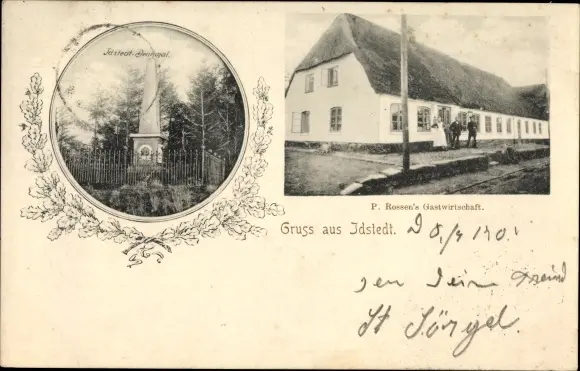 Idstedt-Denkmal.
P. Rossen's Gastwirtschaft.
Gruss aus Idstedt.
Dein Freund
St Sörgel.